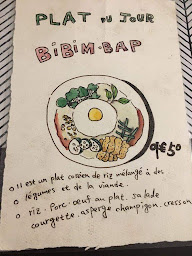 PLAT DU JOUR
BiBiM-BAP
9€50
o Il est un plat coréen de riz mélangé à des
légumes et de la viande.
o riz. Porc. œuf au plat. salade
courgette, asperge champigon, cresson